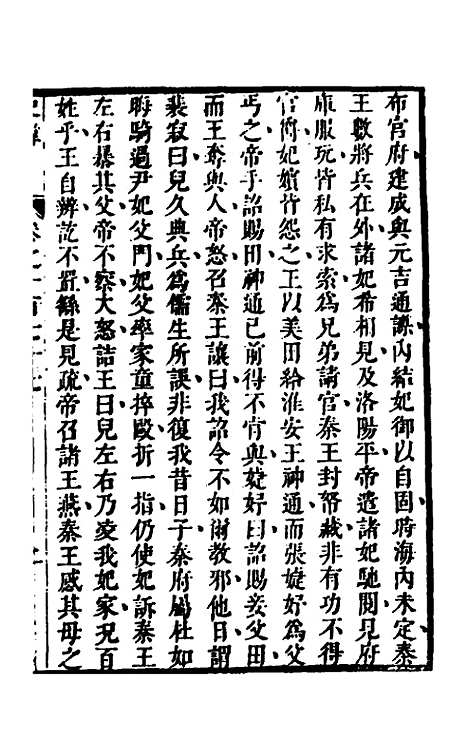 布官府建成與元吉通謀內結妃御以自固時海內未定秦
王數將兵在外諸妃希相見及洛陽平帝遣諸妃馳閱見府
庫服玩皆私有求索爲兄弟請官秦王封帑藏非有功不得
官俏妃嬪皆怨之王以美田給淮安王神通而張婕妤爲父
丐之帝手詔賜田神通已前得不肯與婕妤曰詔賜妾父田
而王奪與人帝怒召秦王讓曰我詔令不如爾教邪他日謂
裴寂曰兒久典兵爲儒生所誤非復我昔日子秦府屬杜如
晦騎過尹妃父門妃父率家童捽毆折一指仍使妃訴秦王
左右暴其父帝不察大怒詰王曰兒左右乃凌我妃家况百
姓乎王自辨訖不置繇是見疏帝召諸王燕秦王感其母之